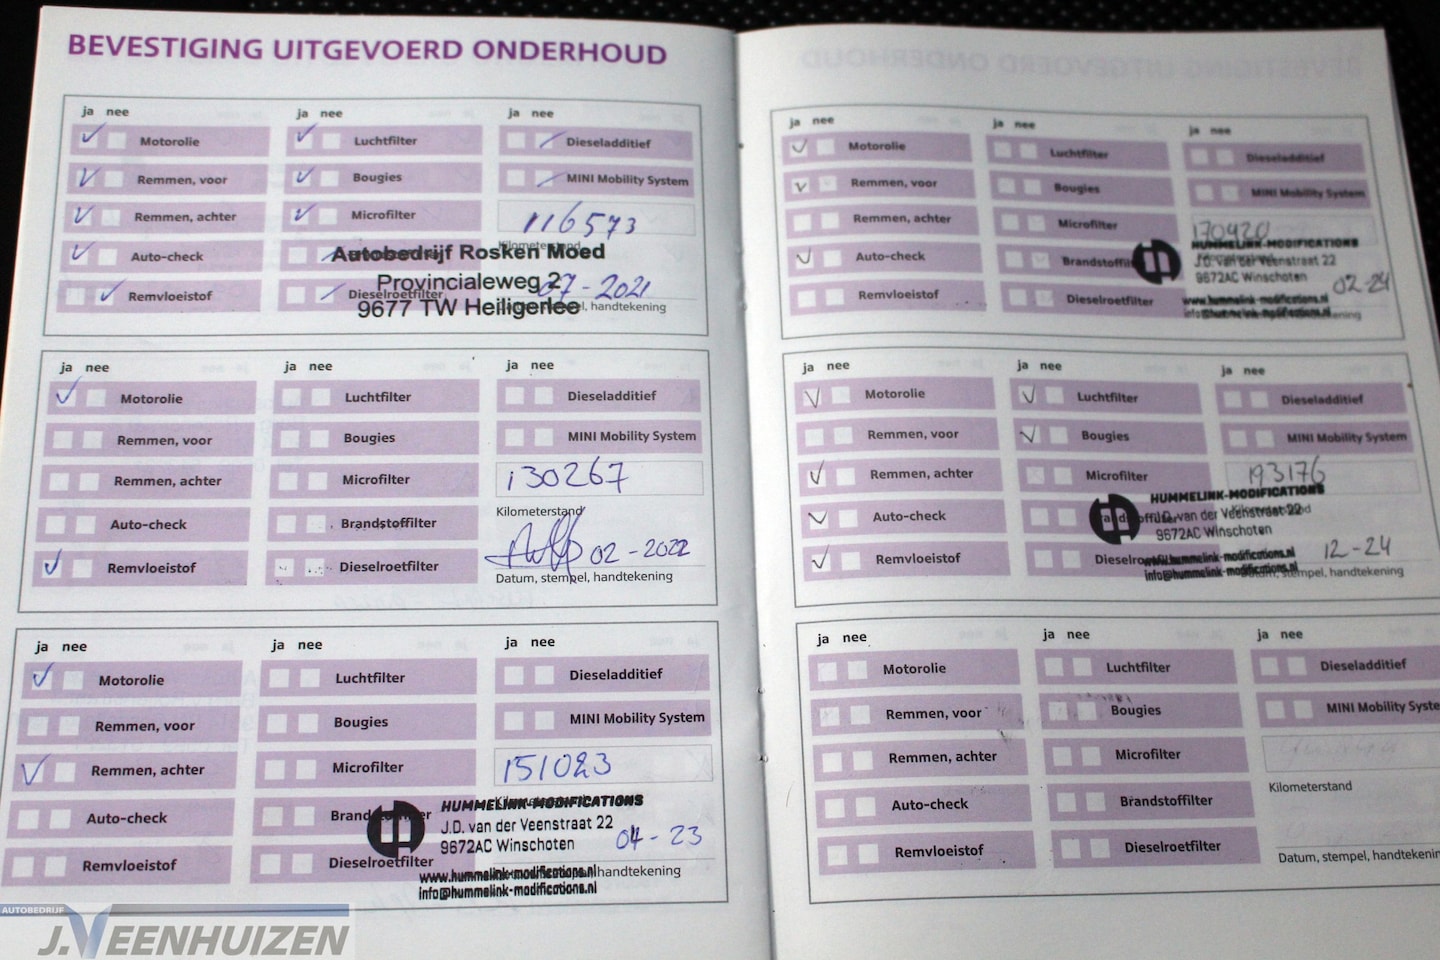 BEVESTIGING UITGEVOERD ONDERHOUD
ja nee
ja nee
ja nee
Motorolie
Luchtfilter
Dieseladditief
Remmen, voor
Bougies
MINI Mobility System
Remmen, achter
Microfilter
116573
Kilometerstand
Auto-check
Autobedrijf Rosken Moed
Provincialeweg 2
07-2021
Remvloeistof
Dieselroetfilter
9677 TW Heiligerlee
handtekening
ja nee
ja nee
ja nee
Motorolie
Luchtfilter
Dieseladditief
Remmen, voor
Bougies
MINI Mobility System
Remmen, achter
Microfilter
130267
Kilometerstand
Auto-check
Brandstoffilter
02-2022
Remvloeistof
Dieselroetfilter
Datum, stempel, handtekening
ja nee
ja nee
ja nee
Motorolie
Luchtfilter
Dieseladditief
Remmen, voor
Bougies
MINI Mobility System
Remmen, achter
Microfilter
151023
HUMMELINK-MODIFICATIONS
Auto-check
J.D. van der Veenstraat 22
9672AC Winschoten
04-23
Remvloeistof
Dieselroetfilter
handtekening
www.hummelink-modifications.nl
info@hummelink-modifications.nl
ja nee
ja nee
ja nee
Motorolie
Luchtfilter
Dieseladditief
Remmen, voor
Bougies
MINI Mobility System
Remmen, achter
Microfilter
170420
HUMMELINK-MODIFICATIONS
Auto-check
Brandstoffilter
J.D. van der Veenstraat 22
9672AC Winschoten
02-24
Remvloeistof
Dieselroetfilter
www.hummelink-modifications.nl
info@hummelink-modifications.nl
ja nee
ja nee
ja nee
Motorolie
Luchtfilter
Dieseladditief
Remmen, voor
Bougies
MINI Mobility System
Remmen, achter
Microfilter
193176
HUMMELINK-MODIFICATIONS
Auto-check
J.D. van der Veenstraat 22
9672AC Winschoten
12-24
Remvloeistof
www.hummelink-modifications.nl
info@hummelink-modifications.nl
stempel, handtekening
ja nee
ja nee
ja nee
Motorolie
Luchtfilter
Dieseladditief
Remmen, voor
Bougies
MINI Mobility
Remmen, achter
Microfilter
Kilometerstand
Auto-check
Brandstoffilter
Remvloeistof
Dieselroetfilter
Datum, stempel,
AUTOBEDRIJF
J.VEENHUIZEN